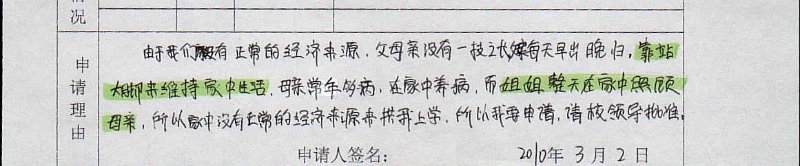 情
况
申请理由
由于我们家没有正常的经济来源，父母亲没有一技之长，每天早出晚归，靠站
大脚来维持家中生活，母亲常年多病，在家中养病，而姐姐整天在家中照顾
母亲，所以家中没有正常的经济来源来供我上学，所以我要申请，请校领导批准。
申请人签名： 2010年3月2日